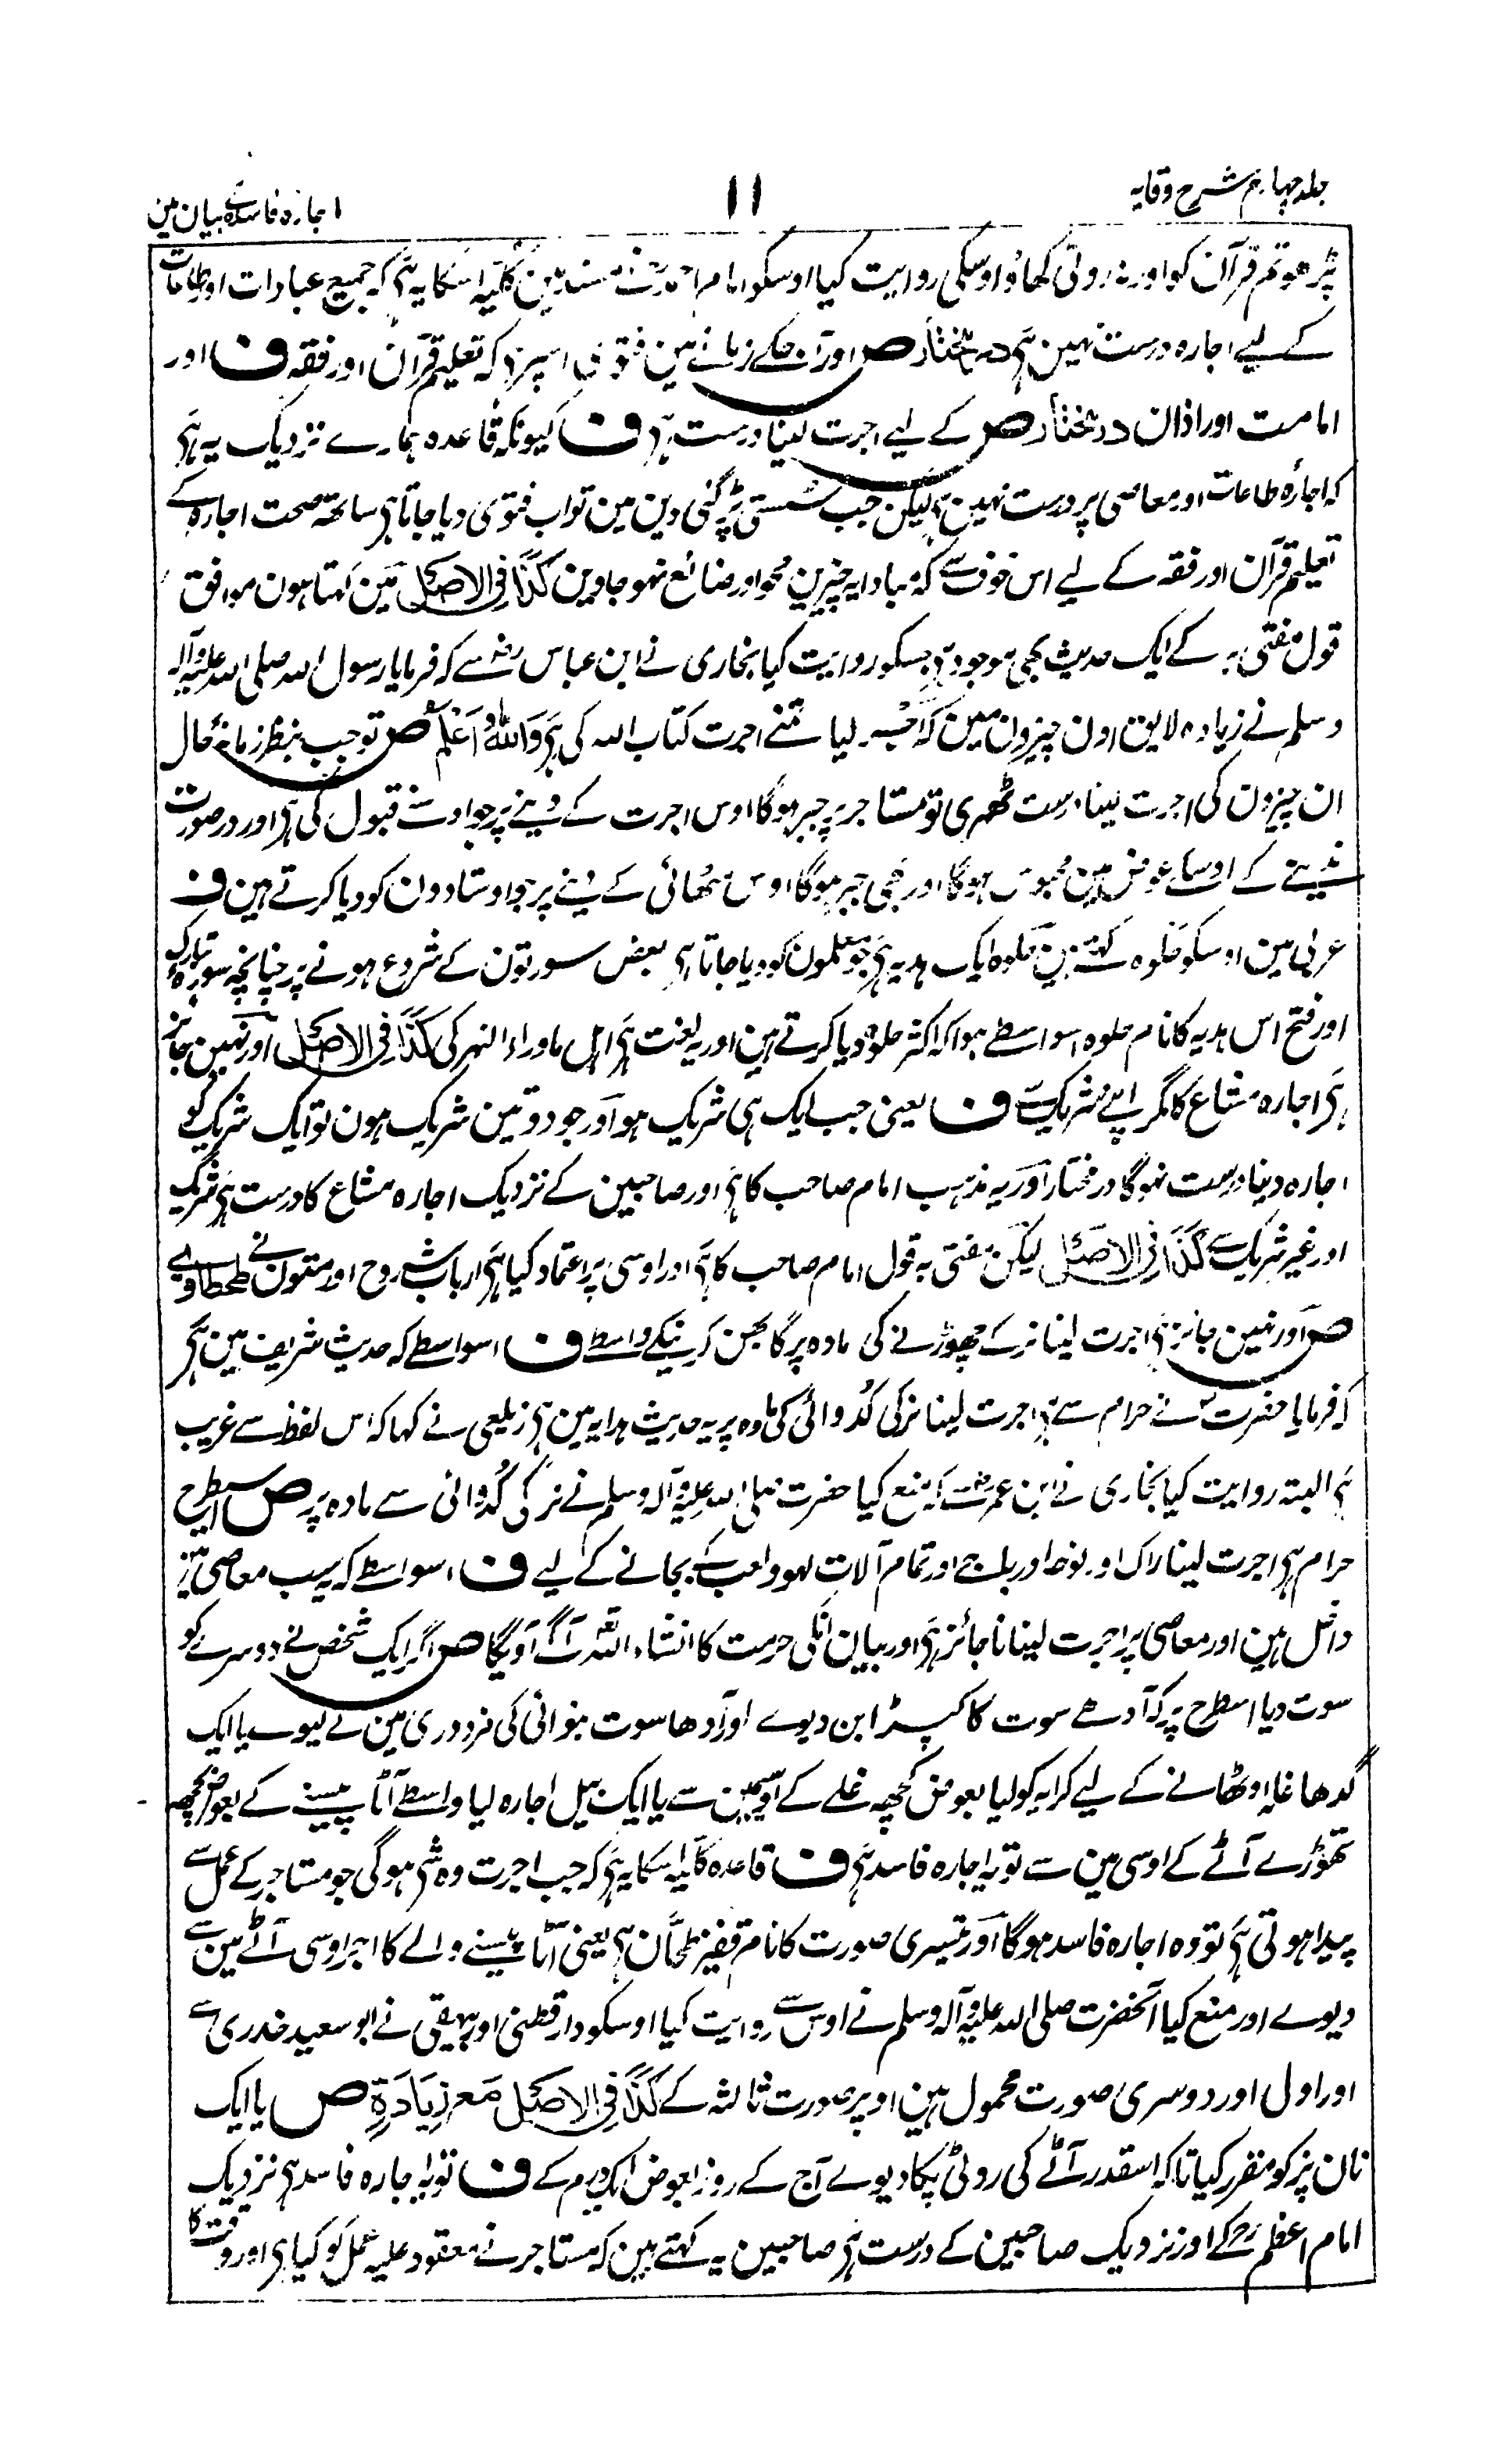 جلد چہارم شرح وقایہ
۱۱
اجارہ فاسدہ کے بیان مین
پڑھو تم قرآن کو اور نہ روٹی کھاؤ اوسکی روایت کیا اوسکو امام احمد نے مسند مین کلیہ اسکا یہ ہے کہ جمیع عبادات اور طاعات
کے لیے اجارہ درست نہین ہے در مختار ص اور آج کے زمانے مین فتویٰ اسپر ہے کہ تعلیم قرآن اور فقہ ف اور
امامت اور اذان در مختار ص کے لیے اجرت لینا درست ہے ف کیونکہ قاعدہ ہمارے نزدیک یہ ہے
کہ اجارہ طاعات اور معاصی پر درست نہین ہے لیکن جب سستی پڑ گئی دین مین تو اب فتویٰ دیا جاتا ہے ساتھ صحت اجارہ کے
تعلیم قرآن اور فقہ کے لیے اس خوف سے کہ مبادا یہ چیزین محو اور ضائع نہو جاوین کَذَا فِی الاصل مین کہتا ہون موافق
قول مفتیٰ بہ کے ایک حدیث بھی موجود ہے جسکو روایت کیا بخاری نے ابن عباس رضہ سے کہ فرمایا رسول اللہ صلی اللہ علیہ وآلہ
وسلم نے زیادہ لایق اون چیزون مین کہ جسپر لیا تمنے اجرت کتاب اللہ کی ہے وَاللّٰہُ اَعْلَمُ ص تو جب بنظر زمانۂ حال
ان چیزون کی اجرت لینا درست ٹھہری تو مستاجر پر جبر ہوگا اوس اجرت کے دینے پر جو اوسنے قبول کی ہے اور در صورت
ندینے کے اوسکے عوض مین محبوس ہوگا اور بھی جبر ہوگا اوس مٹھائی کے دینے پر جو اوستادون کو دیا کرتے ہین ف
عربی مین اوسکو حلوہ کہتے ہین حلوہ ایک ہدیہ ہے جو معلمون کو دیا جاتا ہے بعض سورتون کے شروع ہونے پر چنانچہ سورۂ تبارک
اور فتح اس ہدیہ کا نام حلوہ اسواسطے ہوا کہ اکثر حلوہ دیا کرتے ہین اور یہ لغت ہے اہل ماوراء النہر کی کَذَا فِی الاصل اور نہین جائز
ہے اجارہ مشاع کا مگر اپنے شریک سے ف یعنی جب ایک ہی شریک ہو اور جو دو تین شریک ہون تو ایک شریک کو
اجارہ دینا درست نہوگا در مختار اور یہ مذہب امام صاحب کا ہے اور صاحبین کے نزدیک اجارہ مشاع کا درست ہے شریک
اور غیر شریک سے کَذَا فِی الاصل لیکن مفتیٰ بہ قول امام صاحب کا ہے اور اوسی پر اعتماد کیا ہے ارباب شروح اور متون نے طحطاوی
ص اور نہین جائز ہے اجرت لینا نر کے چھوڑنے کی مادہ پر گابھن کرنیکے واسطے ف اسواسطے کہ حدیث شریف مین ہے
کہ فرمایا حضرت نے حرام سے ہے اجرت لینا نر کی کُدوائی کی مادہ پر یہ حدیث ہدایہ مین ہے زیلعی نے کہا کہ اس لفظ سے غریب
ہے البتہ روایت کیا بخاری نے ابن عمر رضہ سے کہ منع کیا حضرت صلی اللہ علیہ وآلہ وسلم نے نر کی کُدوائی سے مادہ پر ص اسیطرح
حرام ہے اجرت لینا راگ اور نوحہ اور باجے اور تمام آلات لہو ولعب کے بجانے کے لیے ف اسواسطے کہ یہ سب معاصی مین
داخل ہین اور معاصی پر اجرت لینا ناجائز ہے اور بیان انکی حرمت کا انشاء اللہ تعالیٰ آگے آویگا ص اگر ایک شخص نے دوسرے کو
سوت دیا اسطرح پر کہ آدھے سوت کا کپڑا بن دیوے اور آدھا سوت بنوانی کی مزدوری مین لے لیوے یا ایک
گدھا غلہ اوٹھانے کے لیے کرایہ کو لیا بعوض کچھ غلے کے اوسمین سے یا ایک بیل اجارہ لیا واسطے آٹا پیسنے کے بعوض کچھ
تھوڑے آٹے کے اوسی مین سے تو یہ اجارہ فاسد ہے ف قاعدہ کلیہ اسکا یہ ہے کہ جب اجرت وہ شے ہوگی جو مستاجر کے عمل سے
پیدا ہوتی ہے تو وہ اجارہ فاسد ہوگا اور تیسری صورت کا نام قفیز طحّان ہے یعنی آٹا پیسنے والے کا اجر اوسی آٹے مین سے
دیوے اور منع کیا آنحضرت صلی اللہ علیہ وآلہ وسلم نے اوس سے روایت کیا اوسکو دارقطنی اور بیہقی نے ابو سعید خدری سے
اور اول اور دوسری صورت محمول ہین اوپر صورت ثالثہ کے کَذَا فِی الاصل مَعَ زِیَادَۃٍ ص یا ایک
نان پز کو مقرر کیا تاکہ اسقدر آٹے کی روٹی پکا دیوے آج کے روز بعوض ایک درم کے ف تو یہ اجارہ فاسد ہے نزدیک
امام اعظم رح کے اور نزدیک صاحبین کے درست ہے صاحبین یہ کہتے ہین کہ مستاجر نے معقود علیہ عمل کو کیا ہے اور وقت کا